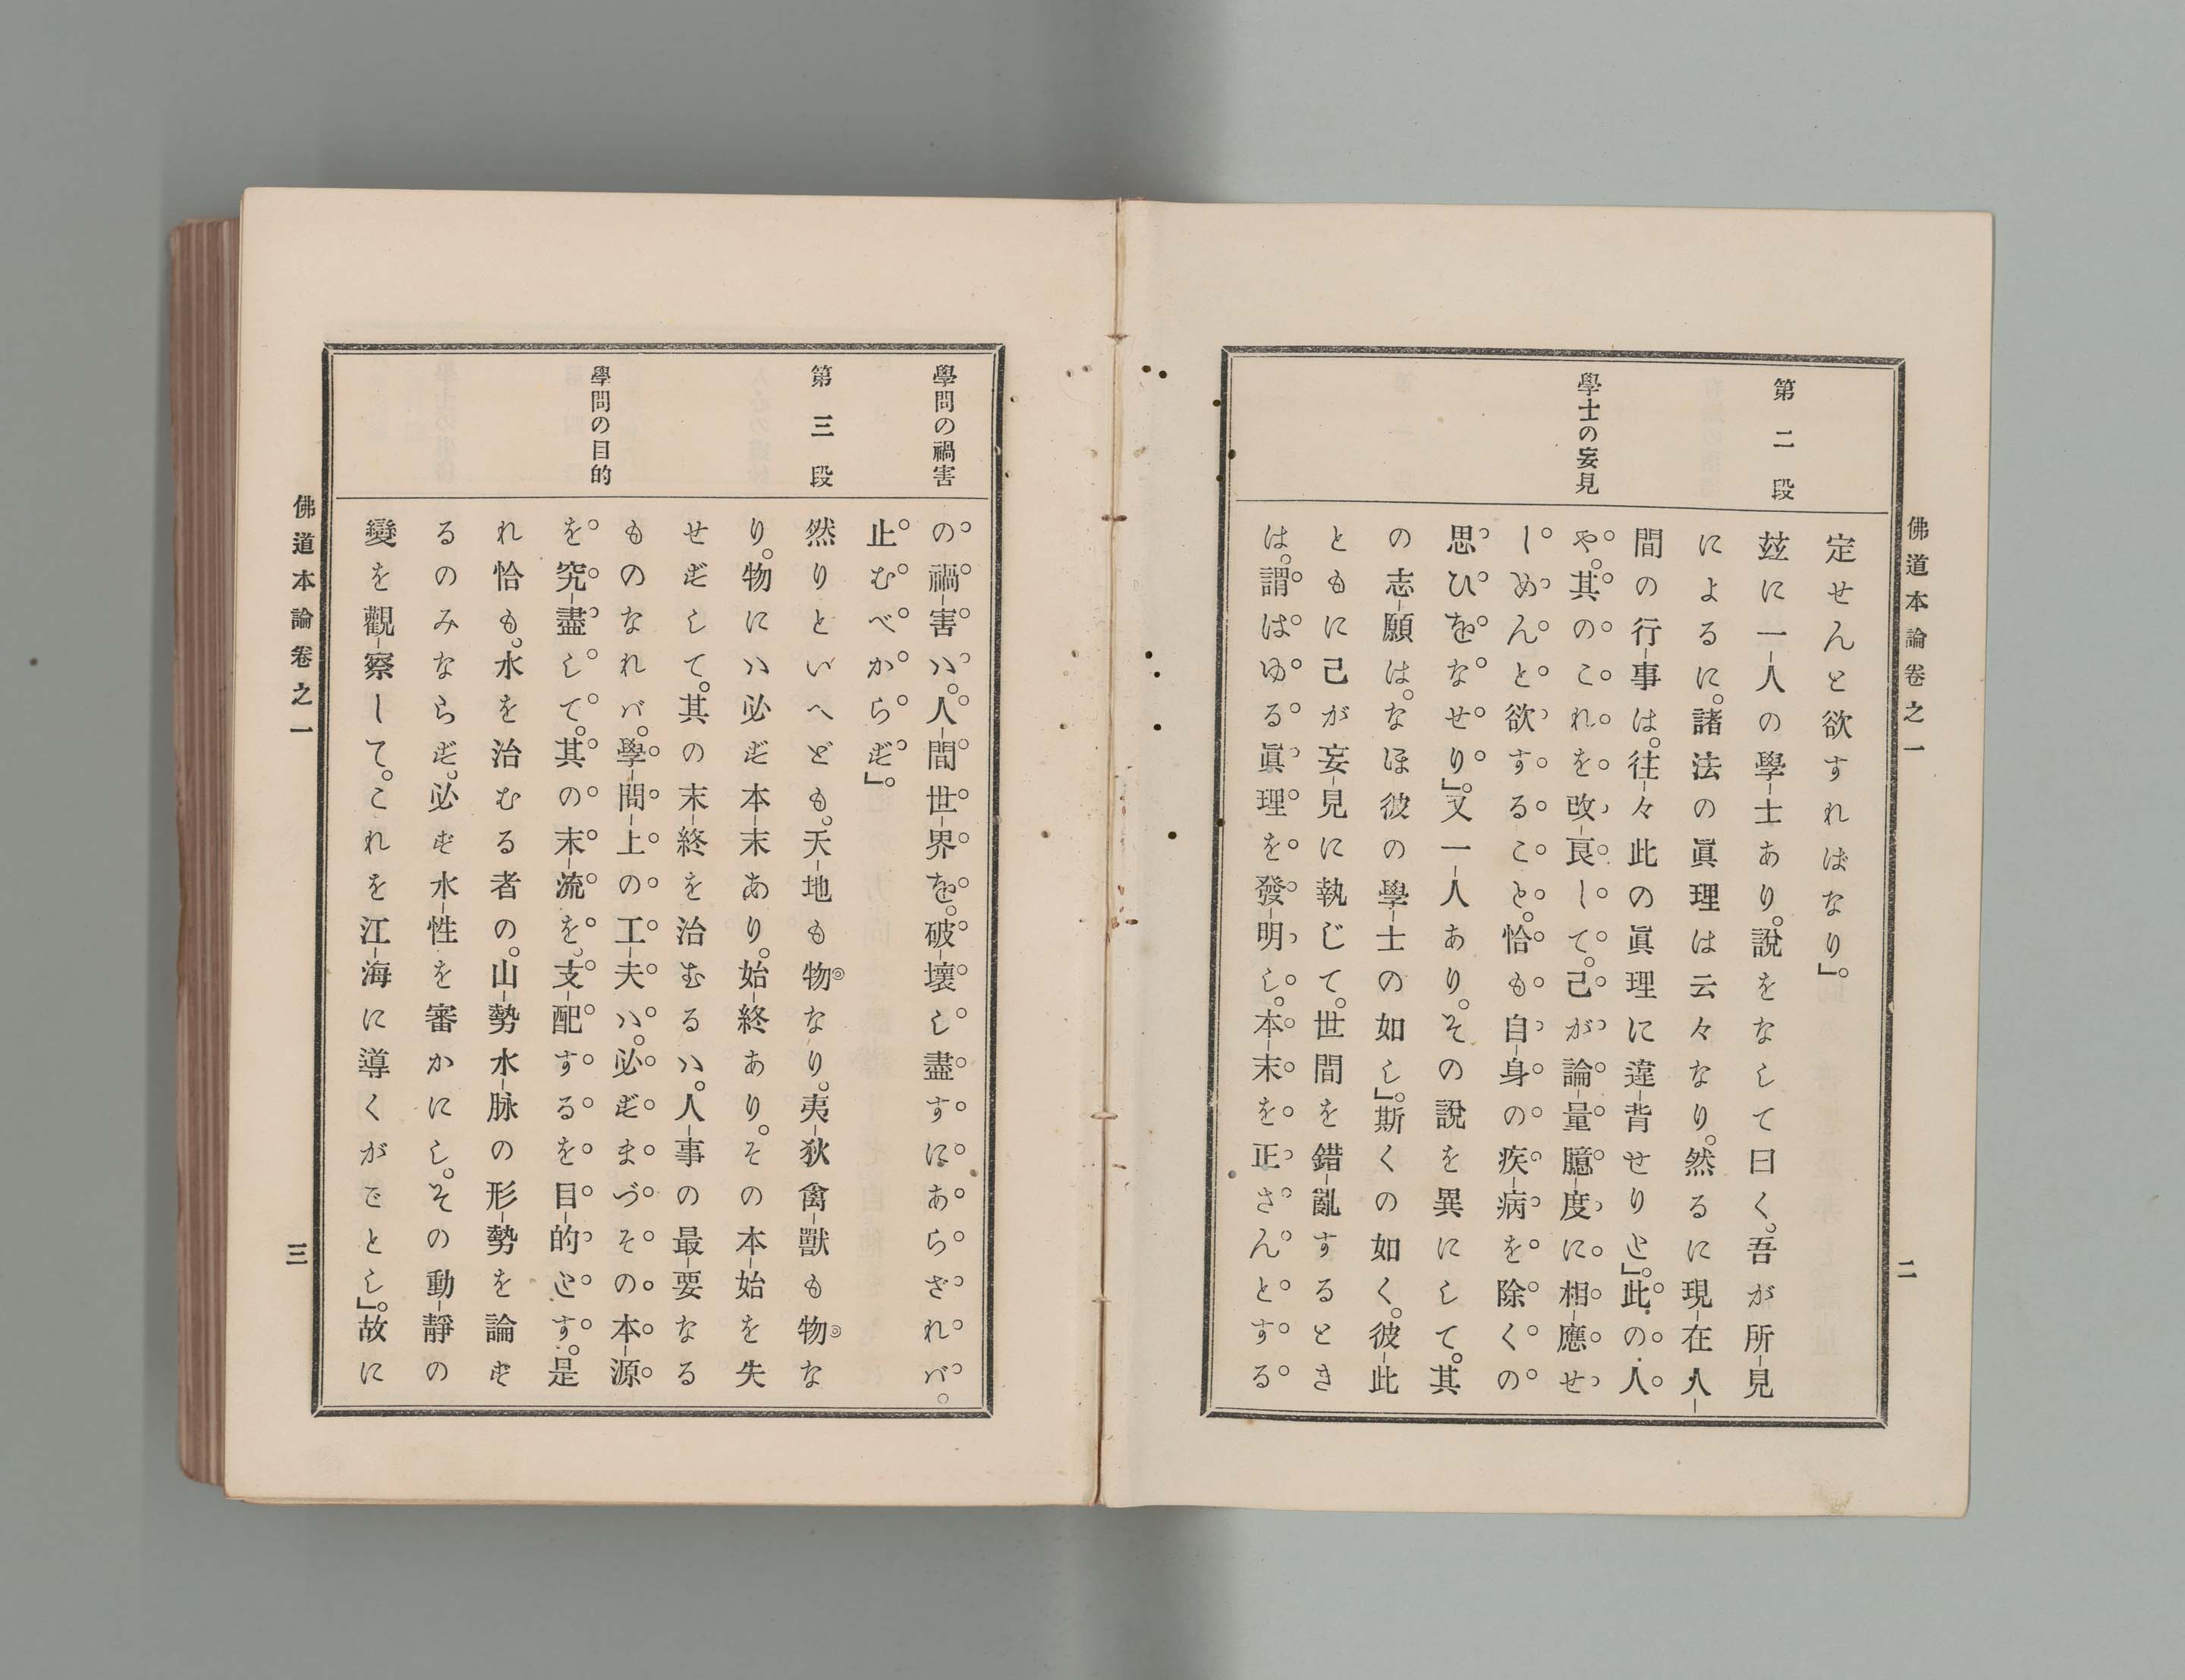 佛道本論卷之一
二
第二段
學士の妄見
定せんと欲すればなり』。
玆に一人の學士あり。說をなして曰く。吾が所見
によるに。諸法の眞理は云々なり。然るに現在人
間の行事は。往々此の眞理に違背せりと』。此の人
や。其のこれを改良して。己が論量臆度に相應せ
しめんと欲すること。恰も自身の疾病を除くの
思ひをなせり』。又一人あり。その說を異にして。其
の志願は。なほ彼の學士の如し』。斯くの如く。彼此
ともに己が妄見に執じて。世間を錯亂するとき
は。謂はゆる眞理を發明し。本末を正さんとする
學問の禍害
第三段
學問の目的
の禍害ハ。人間世界を。破壞し盡すにあらざれバ。
止むべからず』。
然りといへども。天地も物なり。夷狄禽獸も物な
り。物にハ必ず本末あり。始終あり。その本始を失
せずして。其の末終を治むるハ。人事の最要なる
ものなれバ。學問上の工夫ハ。必ずまづその本源
を究盡して。其の末流を。支配するを目的とす。是
れ恰も。水を治むる者の。山勢水脉の形勢を論ず
るのみならず。必ず水性を審かにし。その動靜の
變を觀察して。これを江海に導くがごとし』。故に
佛道本論卷之一
三